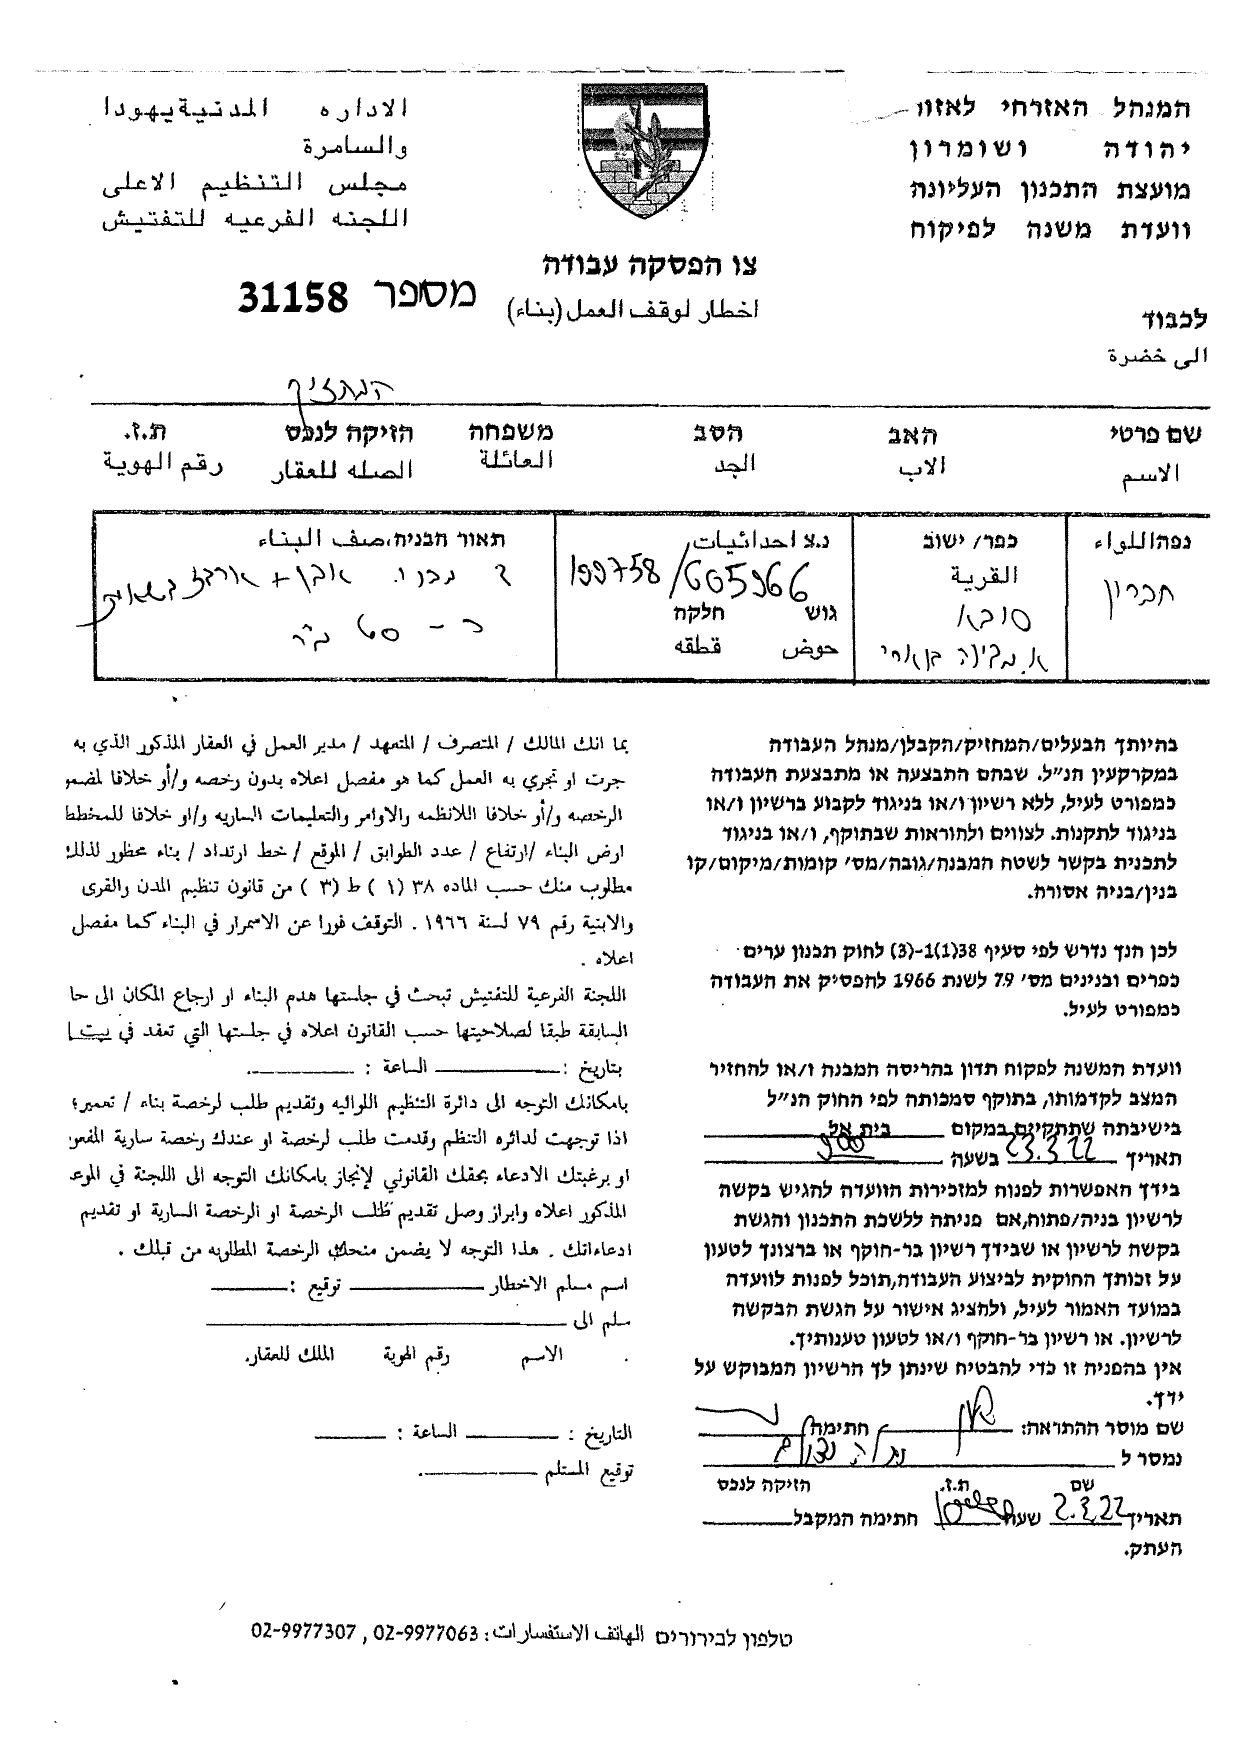 המנהל האזרחי לאזור
יהודה ושומרון
מועצת התכנון העליונה
וועדת משנה לפיקוח
الاداره المدنية يهودا
والسامرة
مجلس التنظيم الاعلى
اللجنه الفرعيه للتفتيش
צו הפסקה עבודה
اخطار لوقف العمل (بناء)
מספר 31158
לכבוד
الى حضرة
המחזיק
שם פרטי האב הסב משפחה הזיקה לנכס ת.ז.
الاسم الاب الجد العائلة الصله للعقار رقم الهوية
נפה اللواء
חברון
כפר/ ישוב
القرية
סובא
נ.צ احداثيات
199758/605966
גוש חלקה
حوض قطقه
תאור הבניה، صنف البناء
בהיותך הבעלים/המחזיק/הקבלן/מנהל העבודה
במקרקעין הנ״ל. שבהם התבצעה או מתבצעת העבודה
כמפורט לעיל, ללא רשיון ו/או בניגוד לקבוע ברשיון ו/או
בניגוד לתקנות. לצווים ולהוראות שבתוקף, ו/או בניגוד
לתכנית בקשר לשטח המבנה/גובה/מס׳ קומות/מיקום/קו
בנין/בניה אסורה.
לכן הנך נדרש לפי סעיף 38(1)1-(3) לחוק תכנון ערים
כפרים ובנינים מס׳ 79 לשנת 1966 להפסיק את העבודה
כמפורט לעיל.
וועדת המשנה לפקוח תדון בהריסה המבנה ו/או להחזיר
המצב לקדמותו, בתוקף סמכותה לפי החוק הנ״ל
בישיבתה שתתקיים במקום בית אל
תאריך 23.3.22 בשעה 900
בידך האפשרות לפנות למזכירות הוועדה להגיש בקשה
לרשיון בניה/פתוח,אם פניתה ללשכת התכנון והגשת
בקשה לרשיון או שבידך רשיון בר-חוקף או ברצונך לטעון
על זכותך החוקית לביצוע העבודה,תוכל לפנות לוועדה
במועד האמור לעיל, ולהציג אישור על הגשת הבקשה
לרשיון. או רשיון בר-חוקף ו/או לטעון טענותיך.
אין בהפניה זו כדי להבטיח שינתן לך הרשיון המבוקש על
ידך.
שם מוסר ההתראה: חתימה
נמסר ל
שם ת.ז. הזיקה לנכס
תאריך 2.3.22 שעה חתימה המקבל
העתק.
بما انك المالك / المتصرف / المتعهد / مدير العمل في العقار المذكور الذي به
جرت او تجري به العمل كما هو مفصل اعلاه بدون رخصه و/أو خلافا لمضمو
الرخصه و/أو خلافا اللانظمه والاوامر والتعليمات الساريه و/او خلافا للمخطط
ارض البناء /ارتفاع / عدد الطوابق / الموقع / خط ارتداد / بناء محظور لذلك
مطلوب منك حسب الماده ٣٨ (١ ) ط (٣ ) من قانون تنظيم المدن والقرى
والابنية رقم ٧٩ لسنة ١٩٦٦ . التوقف فورا عن الاسمرار في البناء كما مفصل
اعلاه .
اللجنة الفرعية للتفتيش تبحث في جلستها هدم البناء او ارجاع المكان الى حا
السابقة طبقا لصلاحيتها حسب القانون اعلاه في جلستها التي تعقد في بيت ا
بتاريخ : الساعة :
بامكانك التوجه الى دائرة التنظيم اللوائيه وتقديم طلب لرخصة بناء / تعمير؛
اذا توجهت لدائره التنظم وقدمت طلب لرخصة او عندك رخصة سارية المفعو
او برغبتك الادعاء بحقك القانوني لإنجاز بامكانك التوجه الى اللجنة في الموعد
المذكور اعلاه وابراز وصل تقديم طلب الرخصة او الرخصة السارية او تقديم
ادعاءاتك . هذا التوجه لا يضمن منحك الرخصة المطلوبه من قبلك .
اسم مسلم الاخطار توقيع :
سلم الى
الاسم رقم الهوية الملك للعقار.
التاريخ : الساعة :
توقيع المستلم
טלפון לבירורים الهاتف الاستفسارات: 02-9977063 , 02-9977307